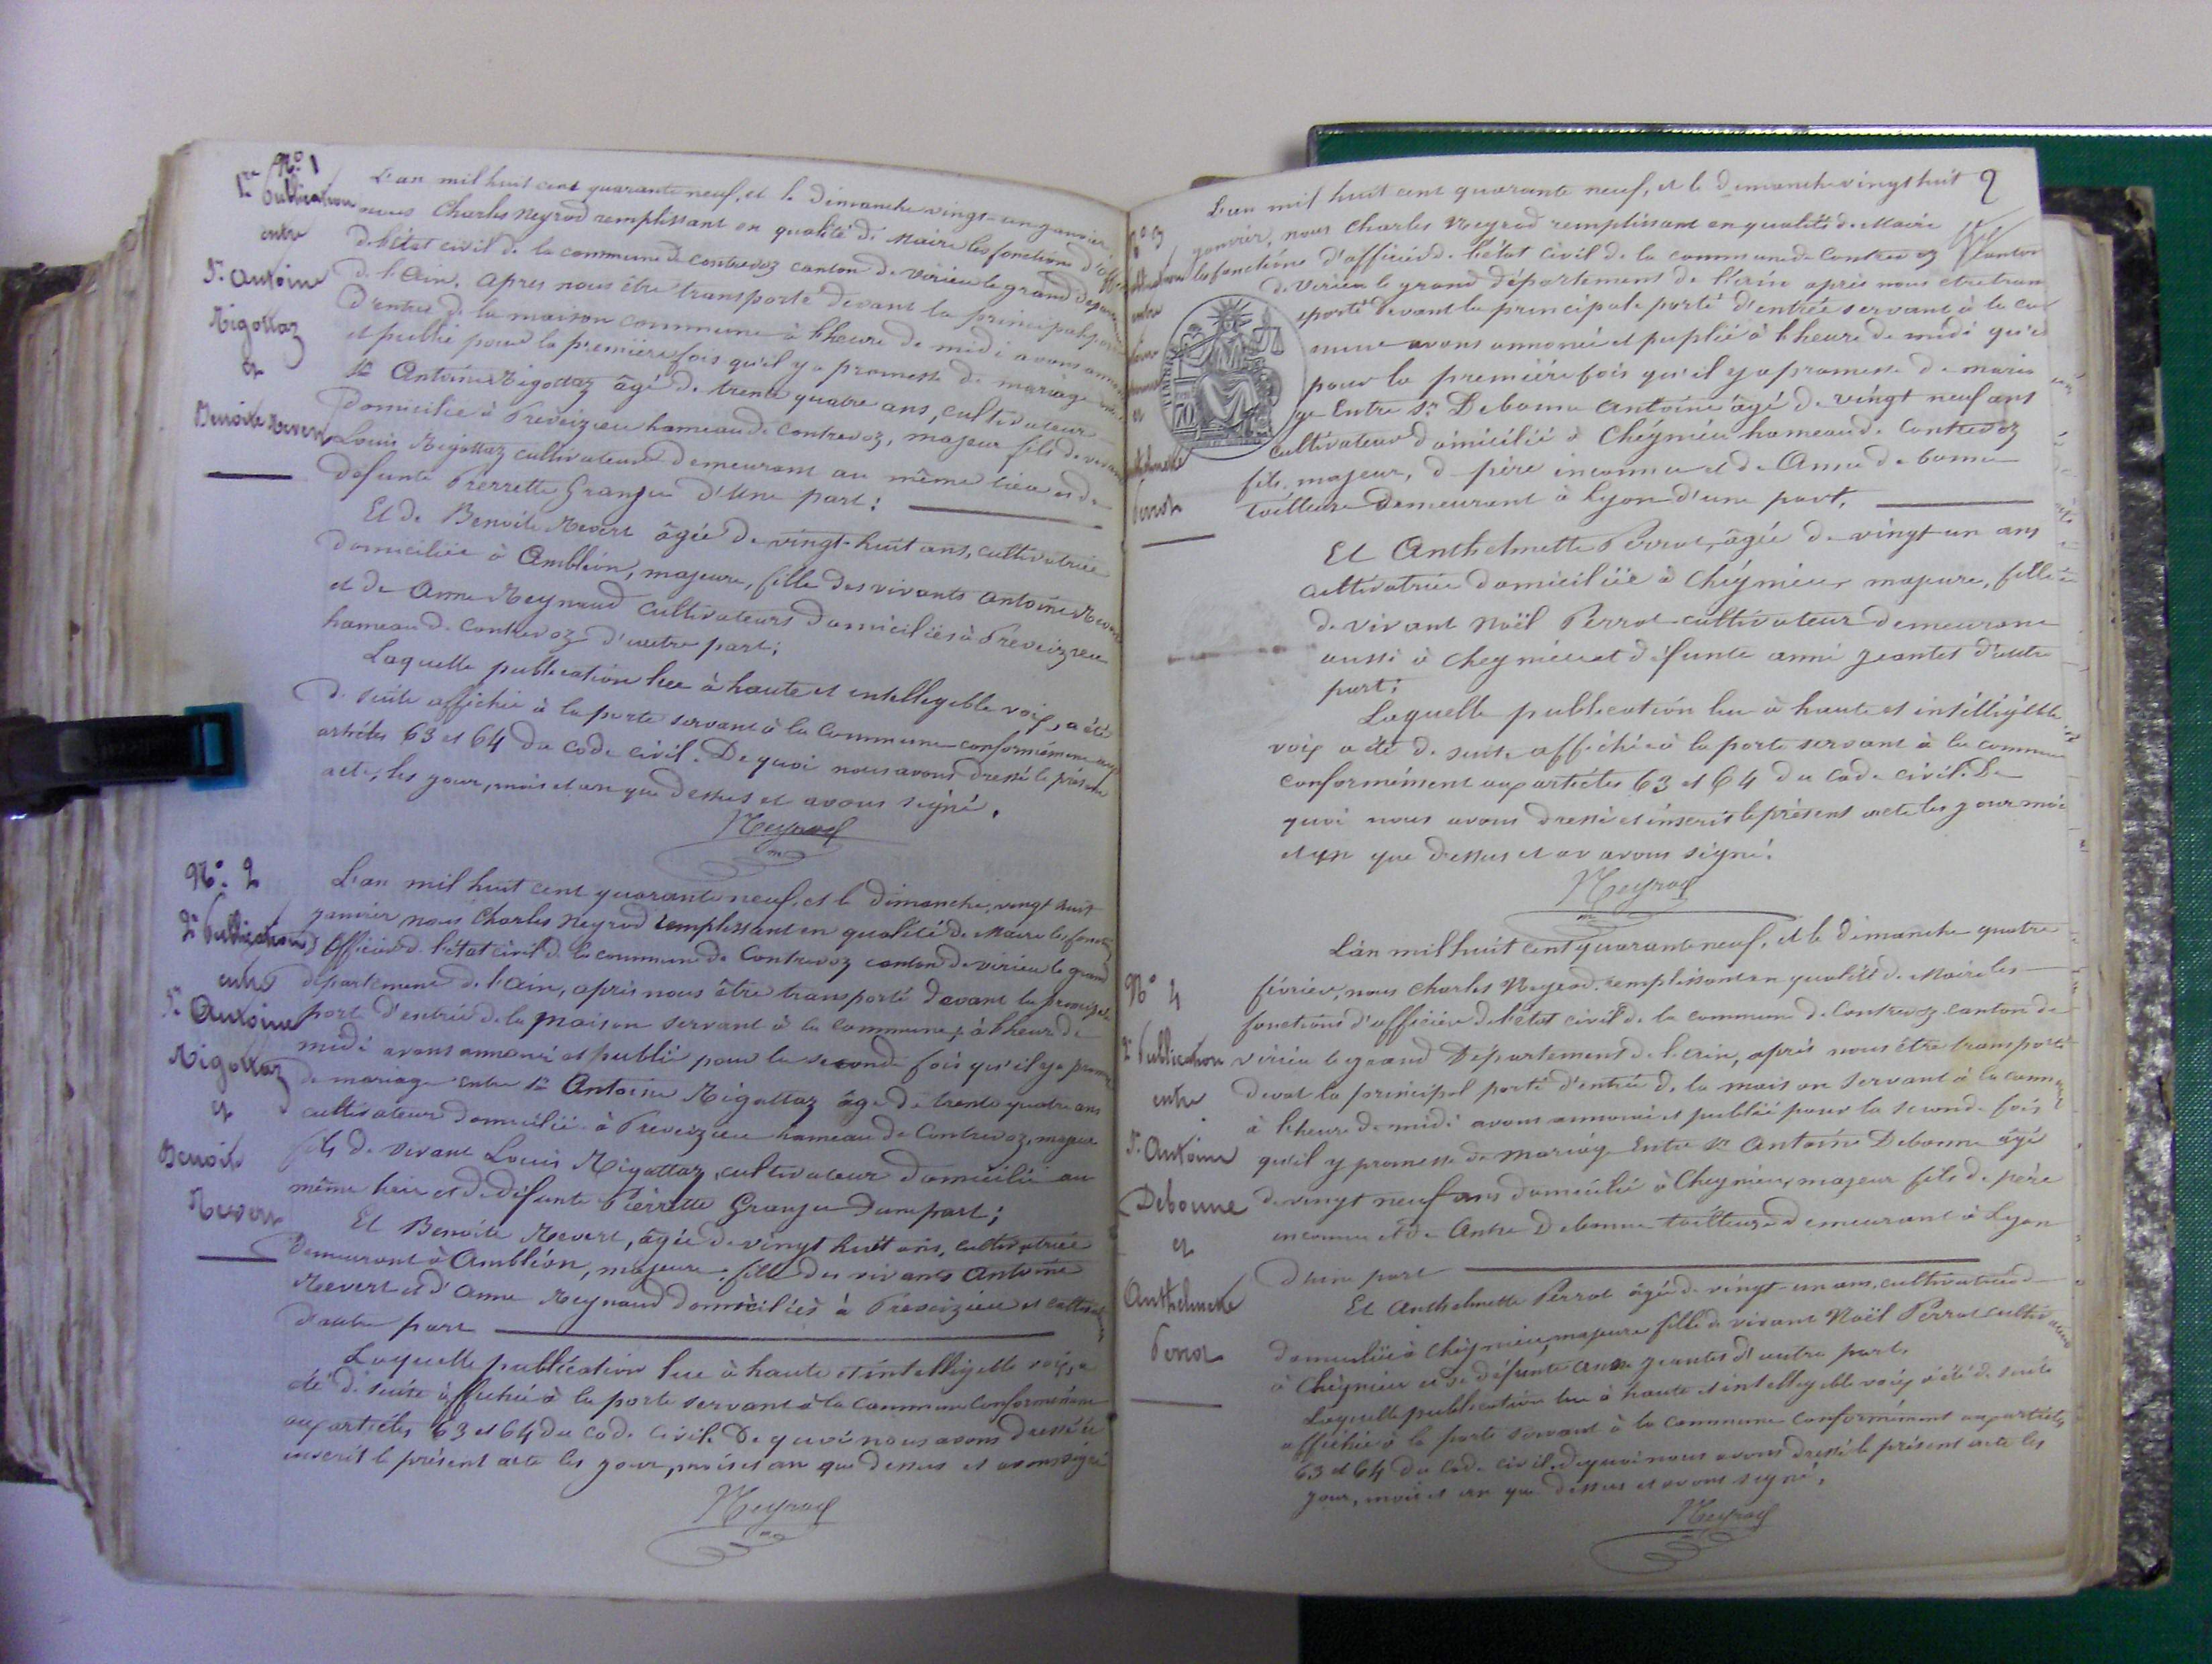 N° 1
1re Publication
entre
Sr Antoine
Rigottaz
et
Benoite Revert
L'an mil huit cent quarante neuf, et le dimanche vingt-un janvier
nous Charles Neyrod remplissant en qualité de Maire les fonctions d'Off
de l'état civil de la commune de Contrevoz canton de Virieu le grand départ
de l'Ain, apres nous être transporté devant la principale porte
d'entrée de la maison commune à l'heure de midi avons annoncé
et publié pour la premiere fois qu'il y a promesse de mariage entre
Sr Antoine Rigottaz âgé de trente quatre ans, cultivateur
domicilié à Preveizieu hameau de Contrevoz, majeur fils de vivant
Louis Rigottaz cultivateur demeurant au même lieu et de
defunte Pierrette Granjeu d'une part;
Et de Benoite Revert âgée de vingt-huit ans, cultivatrice
domiciliée à Ambléon, majeure, fille des vivants Antoine Revert
et de Anne Reynaud cultivateurs domiciliés à Preveizieu
hameau de Contrevoz d'autre part;
Laquelle publication lue à haute et intellegible voix, a été
de suite affichée à la porte servant à la Commune conformément aux
articles 63 et 64 du code civil. De quoi nous avons dressé le présent
acte, les jour, mois et an que dessus et avons signé.
Neyrod
N° 2
2e Publication
entre
Sr Antoine
Rigottaz
et
Benoite
Revert
L'an mil huit cent quarante neuf, et le dimanche, vingt huit
janvier nous Charles Neyrod remplissant en qualité de Maire les fonctions
d'Officier de l'état civil de la commune de Contrevoz canton de Virieu le grand
département de l'Ain, après nous être transporté devant la principale
porte d'entrée de la maison servant à la commune, à l'heure de
midi avons annoncé et publié pour la seconde fois qu'il y a promesse
de mariage entre Sr Antoine Rigottaz âge de trente quatre ans
cultivateur domicilié à Preveizieu hameau de Contrevoz, majeur
fils de vivant Louis Rigottaz, cultivateur domicilié au
même lieu et de défunte Pierrette Granjeu d'une part;
Et Benoite Revert, âgée de vingt huit ans, cultivatrice
demeurant à Ambléon, majeure, fille des vivants Antoine
Revert et d'Anne Reynaud domiciliés à Preveizieu et cultivateurs
d'autre part
Laquelle publication lue à haute et intelligible voix, a
été de suite affichée à la porte servant à la commune conformément
aux articles 63 et 64 du code civil. De quoi nous avons dressé et
inscrit le présent acte les jour, mois et an que dessus et avons signé
Neyrod
2
N° 3
entre
et
Perrot
L'an mil huit cent quarante neuf, et le dimanche vingt huit
janvier, nous Charles Neyrod remplissant en qualité de Maire
les fonctions d'officier de l'état civil de la commune de Contrevoz canton
de Virieu le grand département de l'Ain après nous être tran
sporté devant la principale porte d'entrée servant à la co
mune avons annoncé et puplié à l'heure de midi qu'e
pour la première fois qu'il y a promesse de maria
ge Entre Sr Debonne Antoine âgé de vingt neuf ans
cultivateur domicilié à Cheÿmieu hameau de Contrevoz
fils majeur, de père inconnu et de Anne Debonne
tailleuse demeurant à Lyon d'une part,
TIMBRE
70
Et Anthelmette Perrot, âgée de vingt-un ans
cultivatrice domiciliée à Cheÿmieu majeure, fille
de vivant Noël Perrot cultivateur demeurant
aussi à Cheymieu et défunte anne Jeantet d'autre
part;
Laquelle publication lue à haute et intélligible
voix a été de suite affichée à la porte servant à la commune
conformément aux articles 63 et 64 du code civil. De
quoi nous avons dressé et inscrit le présent acte les jour mois
et an que dessus et av avons signé.
Neyrod
N° 4
2e Publication
entre
Sr Antoine
Debonne
et
Anthelmette
Perrot
L'an mil huit cent quarante neuf, et le dimanche quatre
février, nous Charles Neyrod remplissant en qualité de Maire les
fonctions d'officier de l'état civil de la commune de Contrevoz canton de
Virieu le grand Département de l'Ain, après nous être transporté
devat la principal porte d'entrée de la maison servant à la commune
à l'heure de midi avons annoncé et publié pour la seconde fois
qu'il y promesse de mariage Entre Sr Antoine Debonne âgé
de vingt neuf ans domicilié à Cheymieu, majeur fils de père
inconnu et de Anne Debonne tailleuse demeurant à Lyon
d'une part
Et Anthelmette Perrot âgée de vingt-un ans, cultivatrice
domiciliée à Cheymieu, majeure fille de vivant Noël Perrot cultivateur
à Cheymieu et de défunte Anne Jeantet d'autre part,
Laquelle publication lue à haute et intelligible voix a été de suite
affichée à la porte servant à la commune conformément aux articles
63 et 64 du code civil, de quoi nous avons dressé le présent acte les
jour, mois et an que dessus et avons signé.
Neyrod